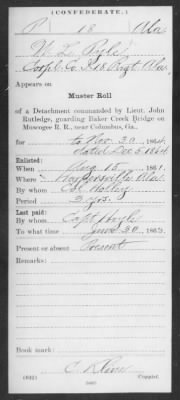 (CONFEDERATE.)
P 18 Ala
W. L. Pyle
Corpl, Co. I, 18 Regt. Ala.
Appears on
Muster Roll
of a Detachment commanded by Lieut. John
Rutledge, guarding Baker Creek Bridge on
Muscogee R. R., near Columbus, Ga.
for to Nov. 30, 1864
dated Dec 5 1864
Enlisted:
When Aug 15, 1861.
Where Ala.
By whom Col. Holley
Period 3 yrs.
Last paid:
By whom Capt.
To what time June 30, 1863.
Present or absent Present
Remarks:
Book mark:
Copyist.